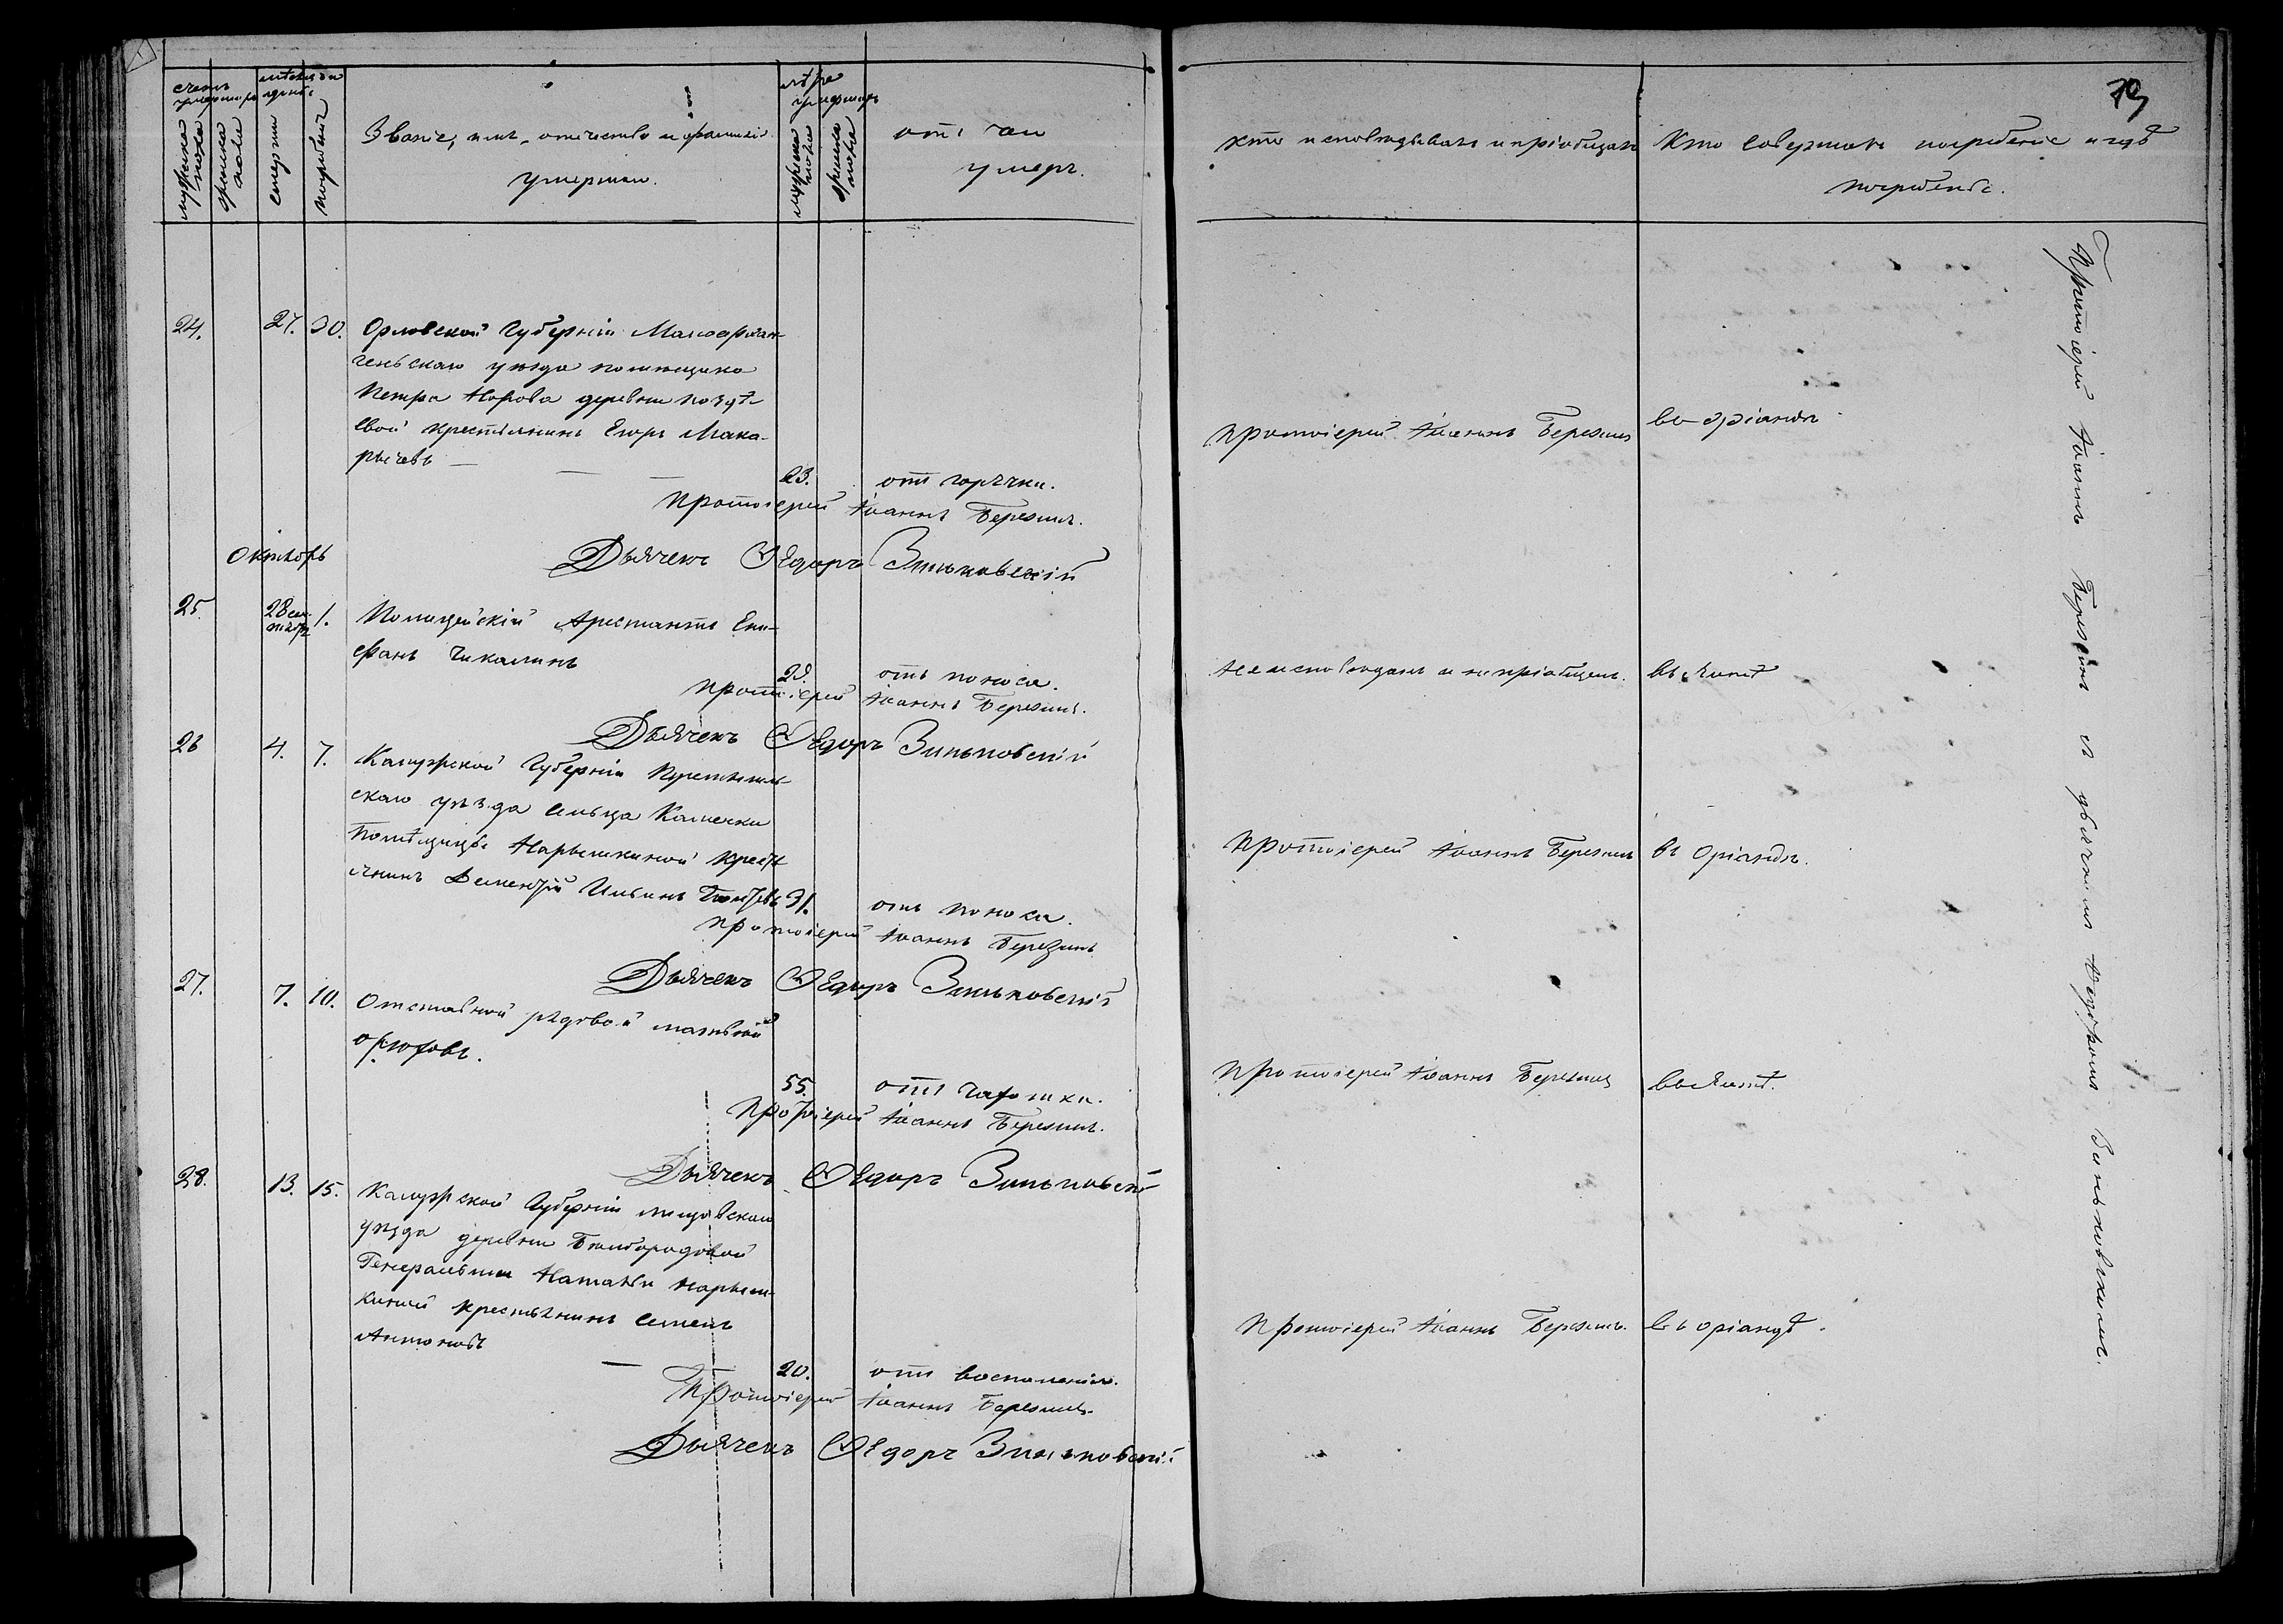 79
счетъ умершихъ
мужеска пола
женска пола
мѣсяцъ и день
смерти
погребенія
Званіе, имя, отчество и фамилія
умершаго.
лѣта умершаго
мужеска пола
женска пола
отъ чего
умеръ.
кто исповѣдывалъ и пріобщалъ
Кто совершалъ погребеніе и гдѣ
погребены.
24.
27. 30.
Орловской Губерніи Малоархан-
гельскаго уѣзда помещика
Петра деревни
крестьянинъ Егоръ Мака-
рычевъ
23.
отъ горячки.
протоіерей Іоаннъ Березинъ
въ Оріандѣ
Протоіерей Іоаннъ Березинъ.
Дьячекъ Ѳедоръ Зиньковскій
Октябрь
25
28 сен-
тября
1.
Полицейскій Арестантъ Епи-
фанъ Чикалинъ
29.
отъ поноса.
не исповѣданъ и не пріобщенъ.
въ Ялтѣ
протоіерей Іоаннъ Березинъ.
Дьячекъ Ѳедоръ Зиньковскій
26
4. 7.
Калужской Губерніи
скаго уѣзда сельца Каменки
Помѣщицы Нарышкиной кресть
янинъ Дементій Ильинъ
31.
отъ поноса.
Протоіерей Іоаннъ Березинъ
въ Оріандѣ.
протоіерей Іоаннъ Березинъ
Дьячекъ Ѳедоръ Зиньковскій
27.
7. 10.
Отставной рядовой матвѣй
орловъ.
55.
отъ чахотки.
Протоіерей Іоаннъ Березинъ
въ Ялтѣ.
Протоіерей Іоаннъ Березинъ.
Дьячекъ Ѳедоръ Зиньковскій
28.
13. 15.
Калужской Губерніи мещовскаго
уѣзда деревни
Генеральши Натальи Нарыш-
киной крестьянинъ Семенъ
Антоновъ
20.
отъ воспаленія.
Протоіерей Іоаннъ Березинъ.
въ Оріандѣ.
Протоіерей Іоаннъ Березинъ.
Дьячекъ Ѳедоръ Зиньковскій
Протоіерей Іоаннъ Березинъ и дьячкомъ Ѳедоромъ Зиньковскимъ.